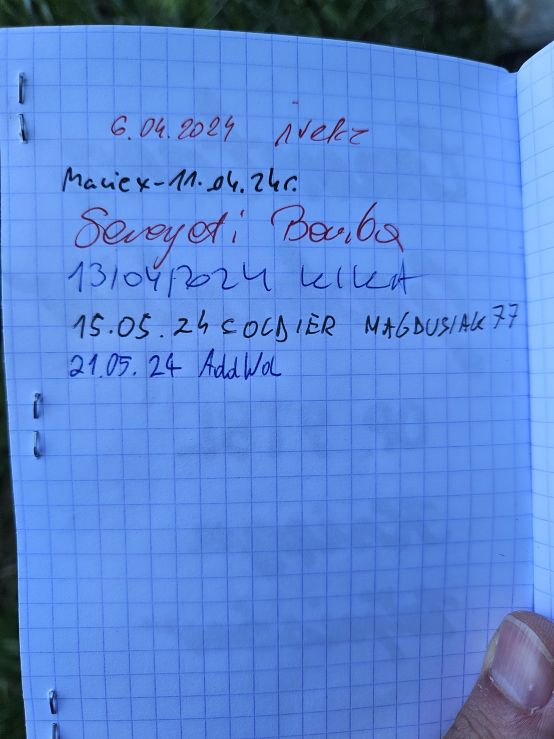 6.04.2024 irekz
Maciex-11.04.24r.
Bomba
13/04/2024 KIKA
15.05.24 SOLDIER MAGDUSIAK77
21.05.24 AddWol